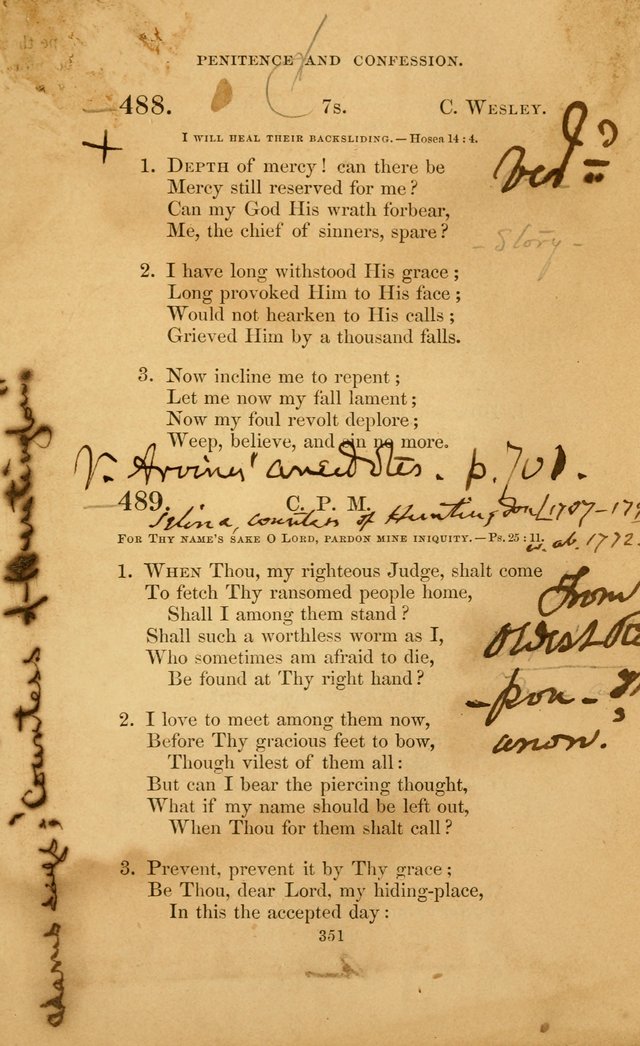 PENITENCE AND CONFESSION.
488. 7s. C. WESLEY.
I WILL HEAL THEIR BACKSLIDING.—Hosea 14 : 4.
1. DEPTH of mercy! can there be
Mercy still reserved for me?
Can my God His wrath forbear,
Me, the chief of sinners, spare?
- Story -
2. I have long withstood His grace;
Long provoked Him to His face;
Would not hearken to His calls;
Grieved Him by a thousand falls.
3. Now incline me to repent;
Let me now my fall lament;
Now my foul revolt deplore;
Weep, believe, and sin no more.
V. Arvines' anecdotes. p. 701.
489. C. P. M.
Selina, countess of Huntingdon 1707-179
FOR THY NAME'S SAKE O LORD, PARDON MINE INIQUITY.—Ps. 25 : 11.
w. ab. 1772.
1. WHEN Thou, my righteous Judge, shalt come
To fetch Thy ransomed people home,
Shall I among them stand?
Shall such a worthless worm as I,
Who sometimes am afraid to die,
Be found at Thy right hand?
From
Oldest
- pou -
anon.
2. I love to meet among them now,
Before Thy gracious feet to bow,
Though vilest of them all:
But can I bear the piercing thought,
What if my name should be left out,
When Thou for them shalt call?
3. Prevent, prevent it by Thy grace;
Be Thou, dear Lord, my hiding-place,
In this the accepted day:
351
adams says; "Countess of Huntingdon"